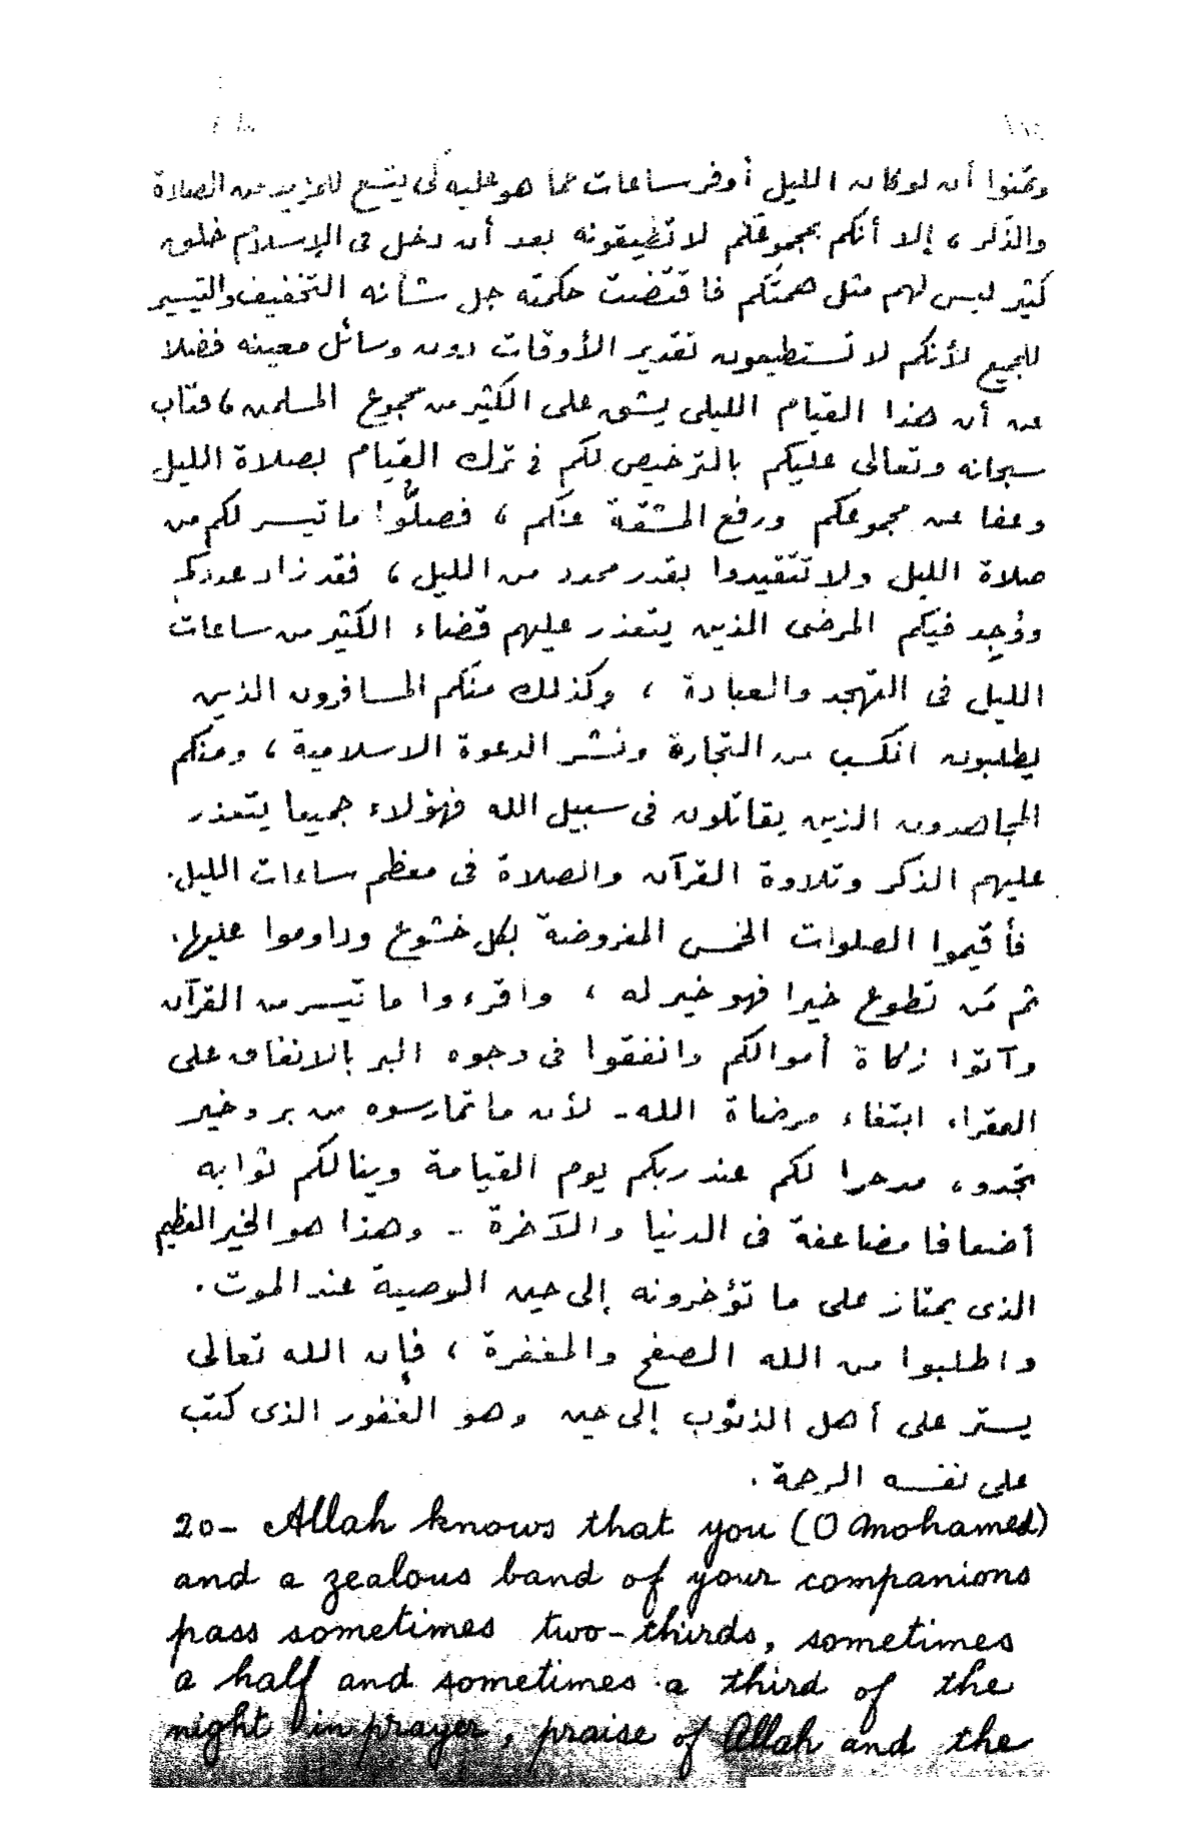 وتمنوا أن لو كان الليل أوفر ساعات مما هو عليه لكى يتسع للمزيد من الصلاة
والذكر ، إلا أنكم بمجموعكم لا تطيقونه بعد أن دخل فى الإسلام خلق
كثير ليس لهم مثل همتكم فاقتضت حكمته جل شأنه التخفيف والتيسير
للجميع لأنكم لا تستطيعون تقدير الأوقات دون وسائل معينه فضلا
عن أن هذا القيام الليلى يشق على الكثير من مجموع المسلمين ، فتاب
سبحانه وتعالى عليكم بالترخيص لكم فى ترك القيام بصلاة الليل
وعفا عن مجموعكم ورفع المشقة عنكم ، فصلُّوا ما تيسر لكم من
صلاة الليل ولا تتقيدوا بقدر محدد من الليل ، فقد زاد عددكم
ووُجِد فيكم المرضى الذين يتعذر عليهم قضاء الكثير من ساعات
الليل فى التهجد والعبادة ، وكذلك منكم المسافرون الذين
يطلبون الكسب من التجارة ونشر الدعوة الاسلامية ، ومنكم
المجاهدون الذين يقاتلون فى سبيل الله فهؤلاء جميعا يتعذر
عليهم الذكر وتلاوة القرآن والصلاة فى معظم ساعات الليل .
فأقيموا الصلوات الخمس المفروضة بكل خشوع وداوموا عليها .
ثم مَن تطوع خيرا فهو خير له ، واقرءوا ما تيسر من القرآن
وآتوا زكاة أموالكم وانفقوا فى وجوه البر بالانفاق على
الفقراء ابتغاء مرضاة الله - لأن ما تمارسوه من بر وخير
تجدوه مدخرا لكم عند ربكم يوم القيامة وينالكم ثوابه
أضعافا مضاعفة فى الدنيا والآخرة .. وهذا هو الخير العظيم
الذى يمتاز على ما تؤخرونه إلى حين الوصية عند الموت .
واطلبوا من الله الصفح والمغفرة ، فإن الله تعالى
يستر على أهل الذنوب إلى حين وهو الغفور الذى كتب
على نفسه الرحمة .
20- Allah knows that you (O Mohamed)
and a zealous band of your companions
pass sometimes two-thirds, sometimes
a half and sometimes a third of the
night in prayer, praise of Allah and the